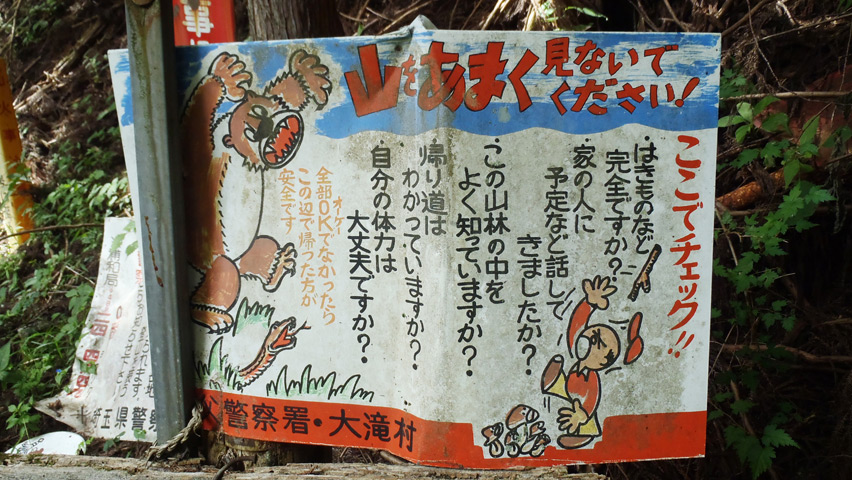 山をあまく見ないで
ください!
ここでチェック!!
・はきものなど
完全ですか?
・家の人に
予定など話して
きましたか?
・この山林の中を
よく知っていますか?
・帰り道は
わかっていますか?
・自分の体力は
大丈夫ですか?
全部OKでなかったら
オーケー
この辺で帰った方が
安全です
警察署・大滝村
埼玉県警察